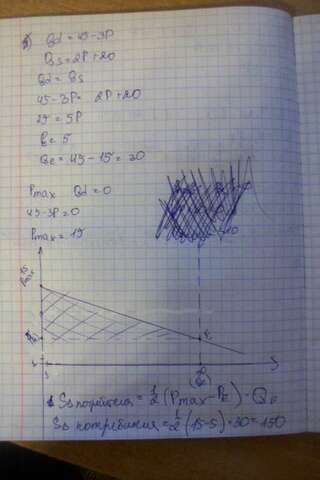 Qd = 45-3P
Qs = 2P+20
Qd = Qs
45-3P = 2P+20
25 = 5P
P = 5
Qe = 45-15 = 30
Pmax Qd = 0
45-3P = 0
Pmax = 15
15
Pmax
E
30
(Qe)
S∆ потребителя = 1/2 (Pmax - PE) · Qe
S∆ потребителя = 1/2 (15-5) · 30 = 150